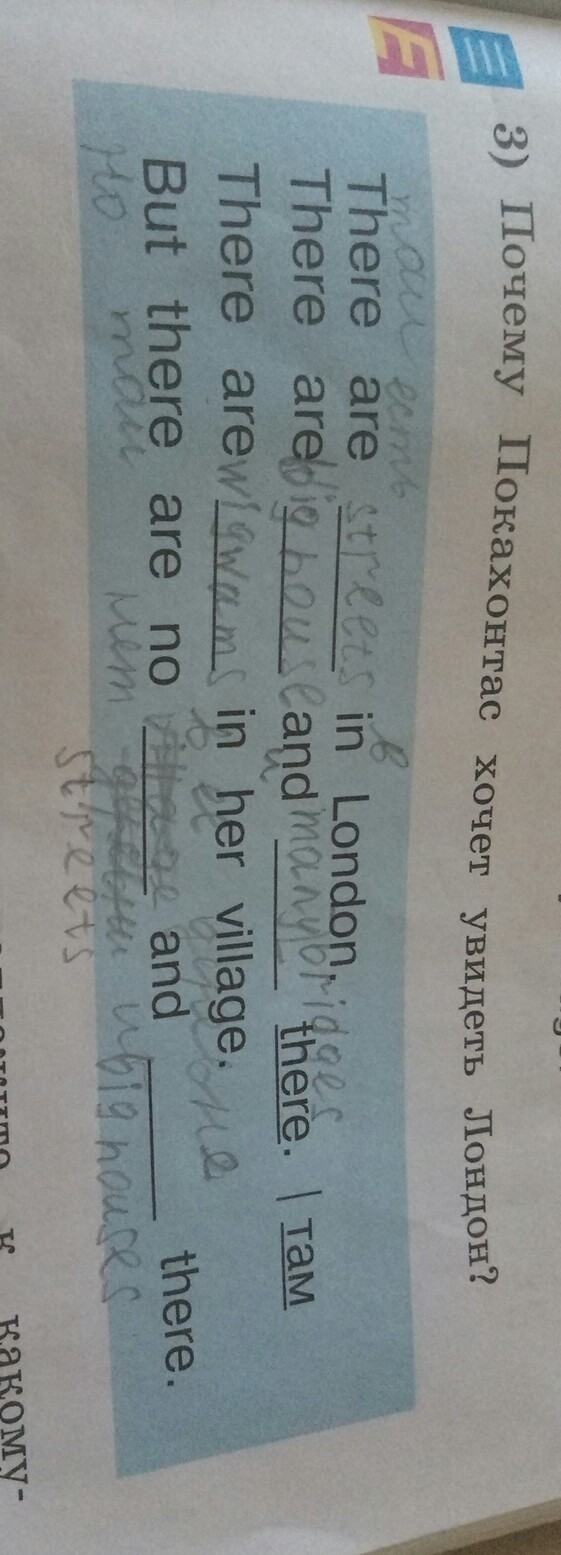 3) Почему Покахонтас хочет увидеть Лондон?
там есть в
There are streets in London,
There are big house and many bridges there. | там
и
There are wigwams in her village.
в её
But there are no and there.
Но там нет и big houses
streets
к какому-